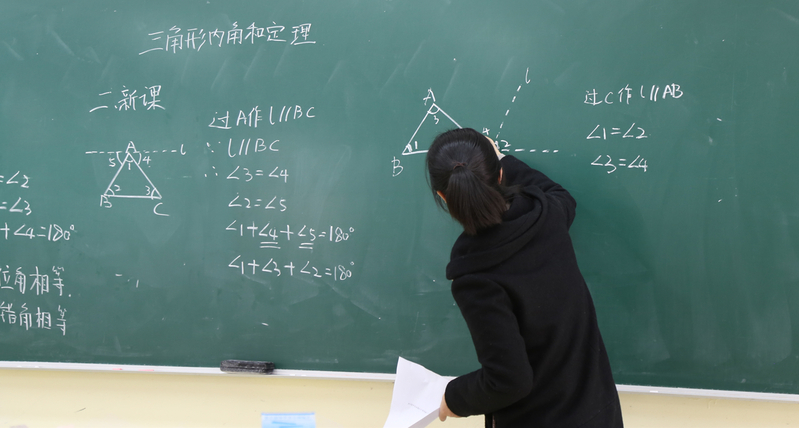 三角形内角和定理
二.新课
=∠2
=∠3
+∠4=180°
位角相等.
错角相等
A
l
5 1 4
2 3
B C
过A作l∥BC
∵ l∥BC
∴ ∠3=∠4
∠2=∠5
∠1+∠4+∠5=180°
∠1+∠3+∠2=180°
A
l
3
B 1
2
过C作l∥AB
∠1=∠2
∠3=∠4